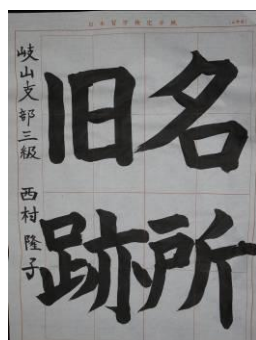 名所
旧跡
岐山支部三級 西村隆子